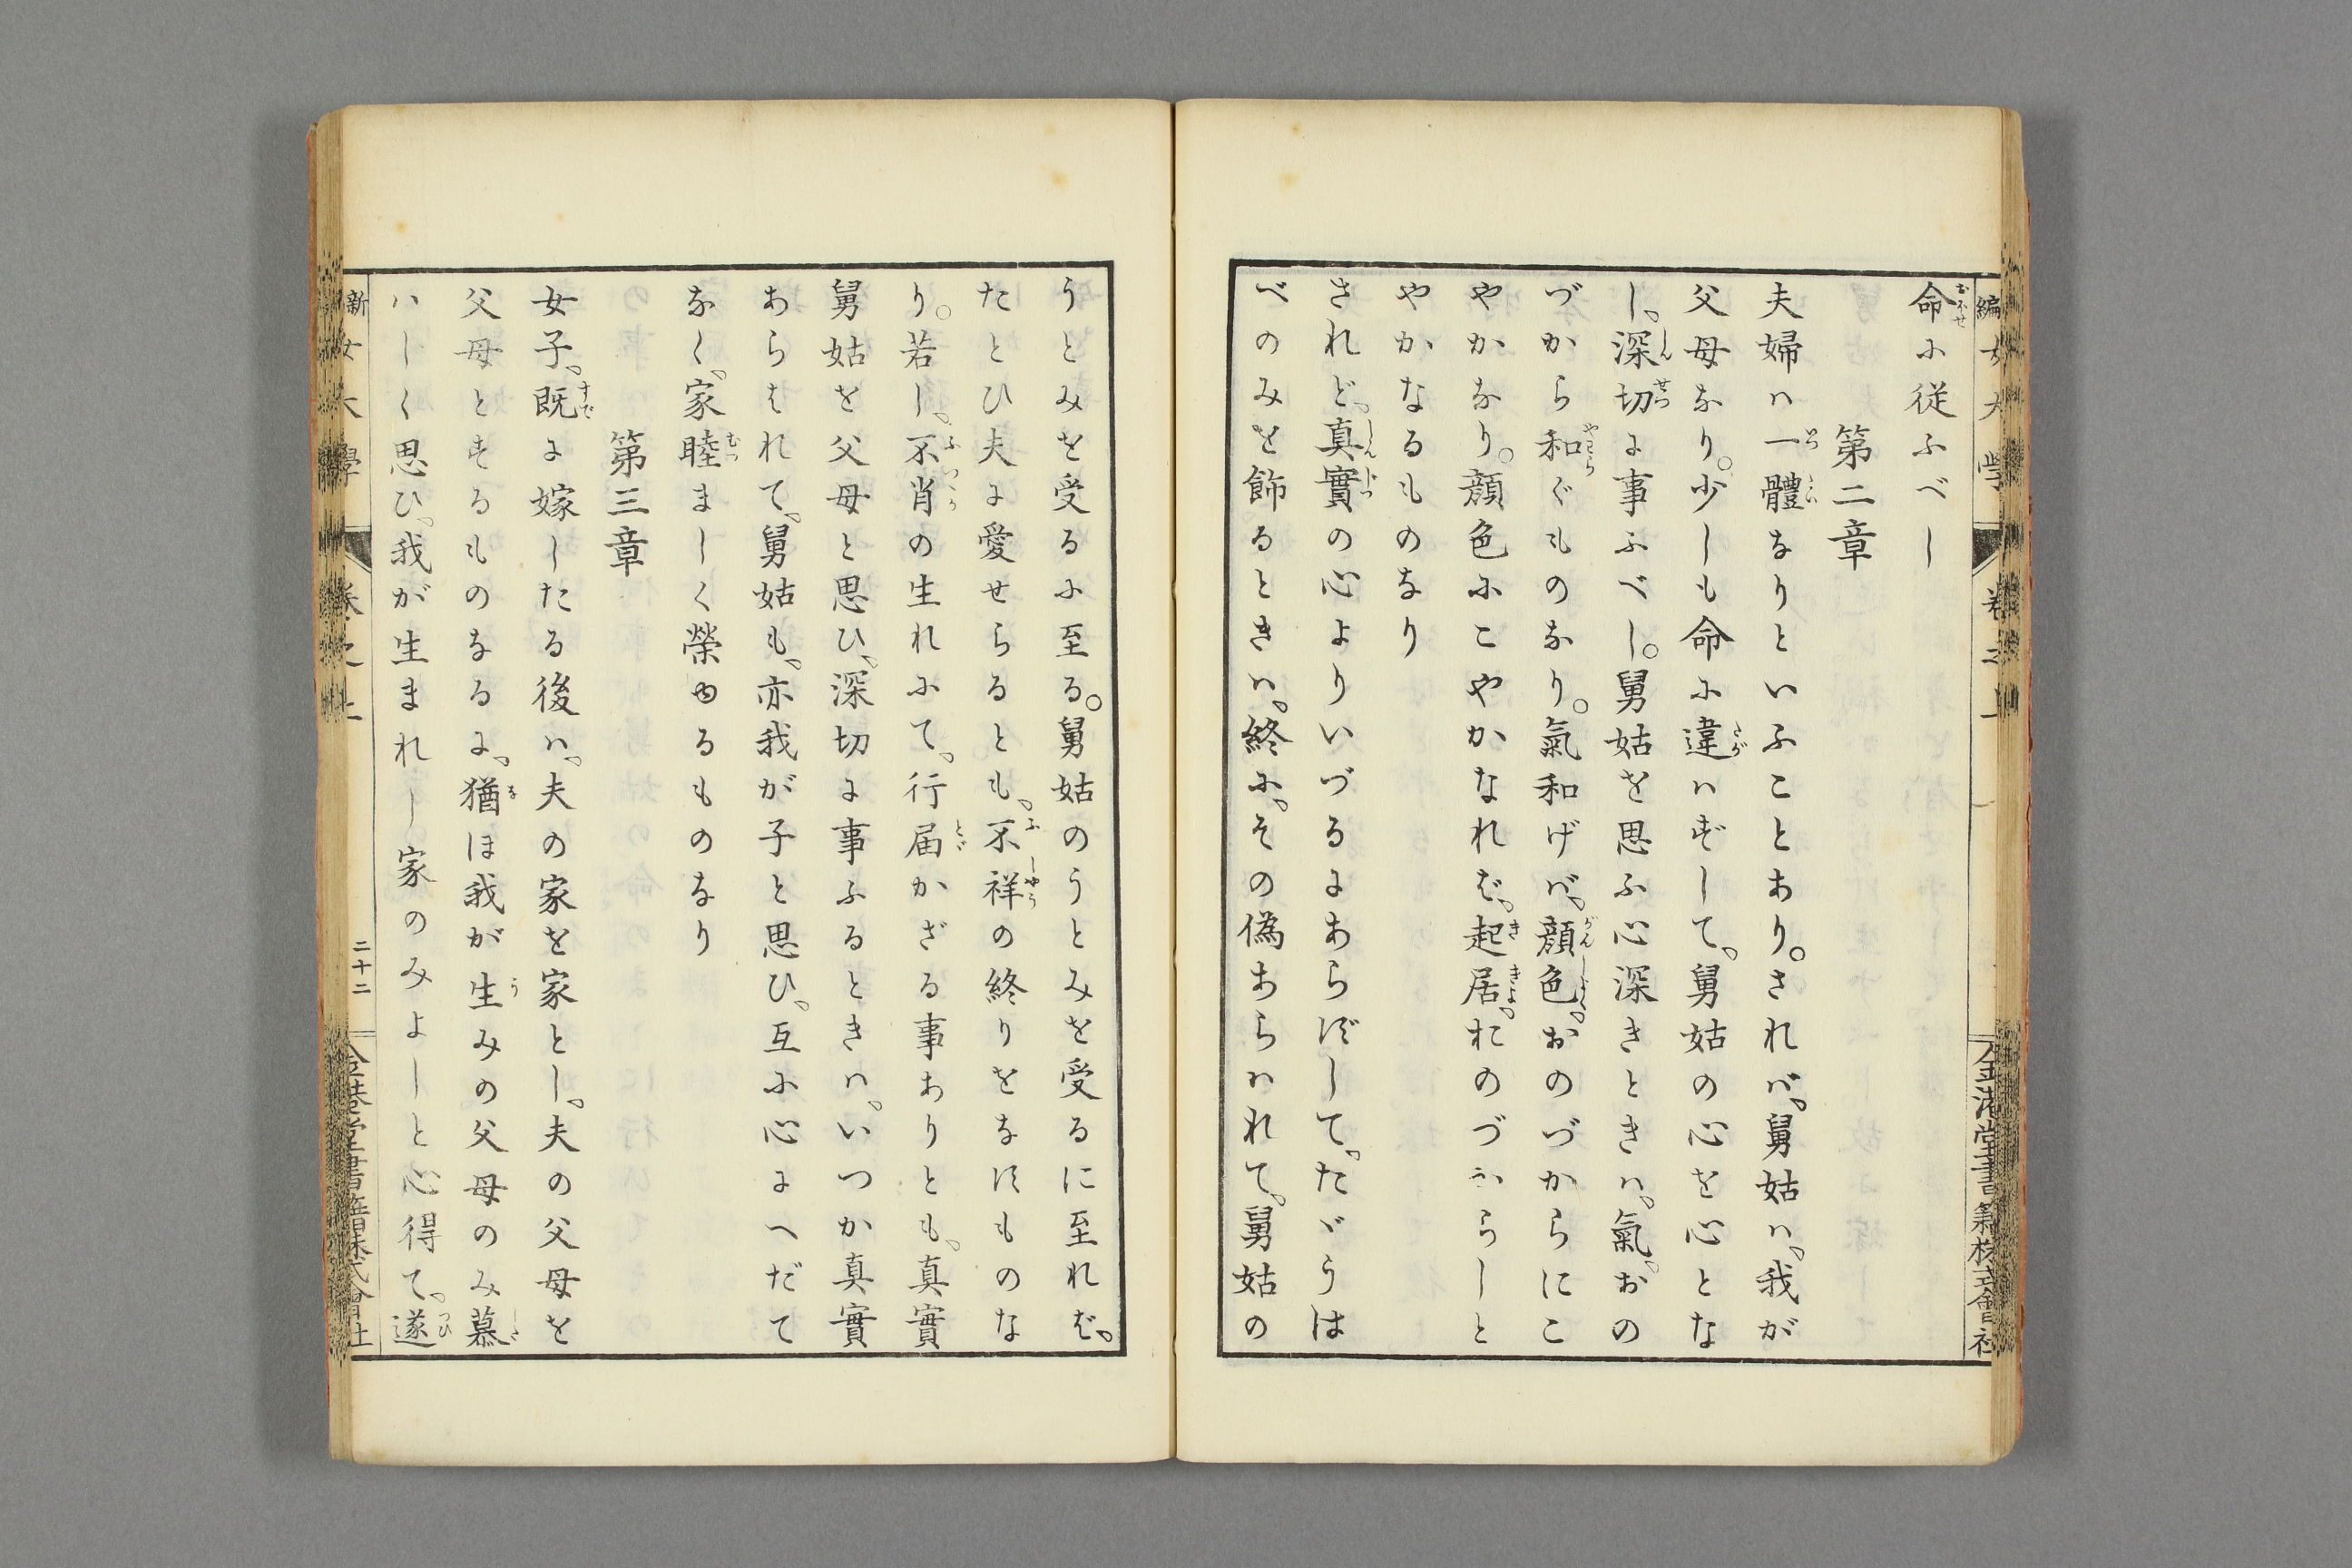 命に従ふべし
第二章
夫婦ハ一體なりといふことあり。されバ、舅姑ハ、我が
父母なり。少しも命に違ハずして、舅姑の心を心とな
し、深切に事ふべし。舅姑を思ふ心深きときハ、氣、おの
づから和ぐものなり。氣和げバ、顔色、おのづからにこ
やかなり。顔色にこやかなれば、起居、おのづからしと
やかなるものなり
されど、真實の心よりいづるにあらずして、たゞうは
べのみを飾るときハ、終に、その偽あらハれて、舅姑の
うとみを受るに至る。舅姑のうとみを受るに至れば、
たとひ夫に愛せらるとも、不祥の終りをなすものな
り。若し、不肖の生れにて、行届かざる事ありとも、真實
舅姑を父母と思ひ、深切に事ふるときハ、いつか真實
あらはれて、舅姑も、亦我が子と思ひ、互に心にへだて
なく、家睦ましく榮ゆるものなり
第三章
女子、既に嫁したる後ハ、夫の家を家とし、夫の父母を
父母とするものなるに、猶ほ我が生みの父母のみ慕
ハしく思ひ、我が生まれし家のみよしと心得て、遂
二十二